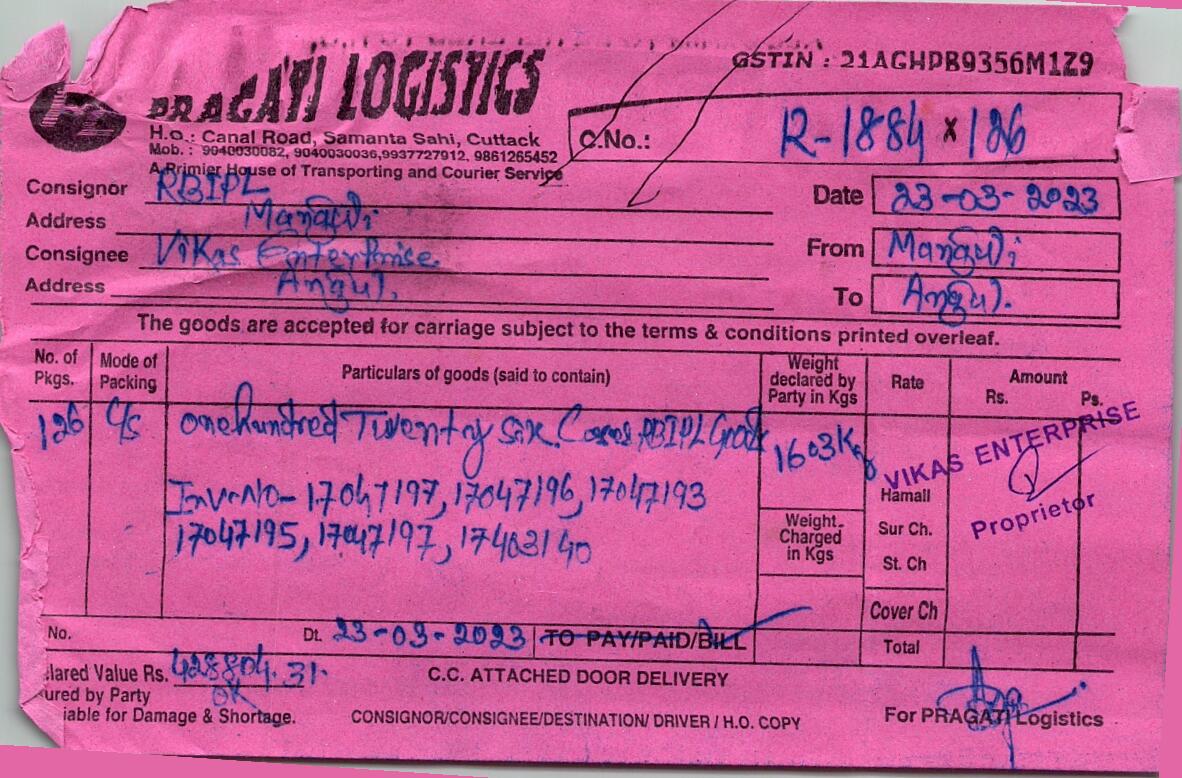 GSTIN : 21AGHPB9356M1Z9
PRAGATI LOGISTICS
H.O.: Canal Road, Samanta Sahi, Cuttack
Mob. : 9040030082, 9040030036,9937727912, 9861265452
A Rrimier House of Transporting and Courier Service
C.No.: R-1884 x 126
Consignor RBIPL
Date 23-03-2023
Address Manguli
From Manguli
Consignee Vikas Enterprise
Address Angul.
To Angul.
The goods are accepted for carriage subject to the terms & conditions printed overleaf.
No. of Pkgs. Mode of Packing Particulars of goods (said to contain) Weight declared by Party in Kgs Rate Amount Rs. Ps.
126 C/s One hundred Twenty Six Cases RBIPL Goods 1603 Kg
VIKAS ENTERPRISE
Proprietor
Inv. No- 17047197, 17047196, 17047193
17045195, 17047197, 17403140
Weight Charged in Kgs
Hamall
Sur Ch.
St. Ch
Cover Ch
No. Dt. 23-03-2023 TO PAY/PAID/BILL Total
lared Value Rs. 428804.31.
C.C. ATTACHED DOOR DELIVERY
ured by Party OK
iable for Damage & Shortage.
CONSIGNOR/CONSIGNEE/DESTINATION/ DRIVER / H.O. COPY
For PRAGATI Logistics